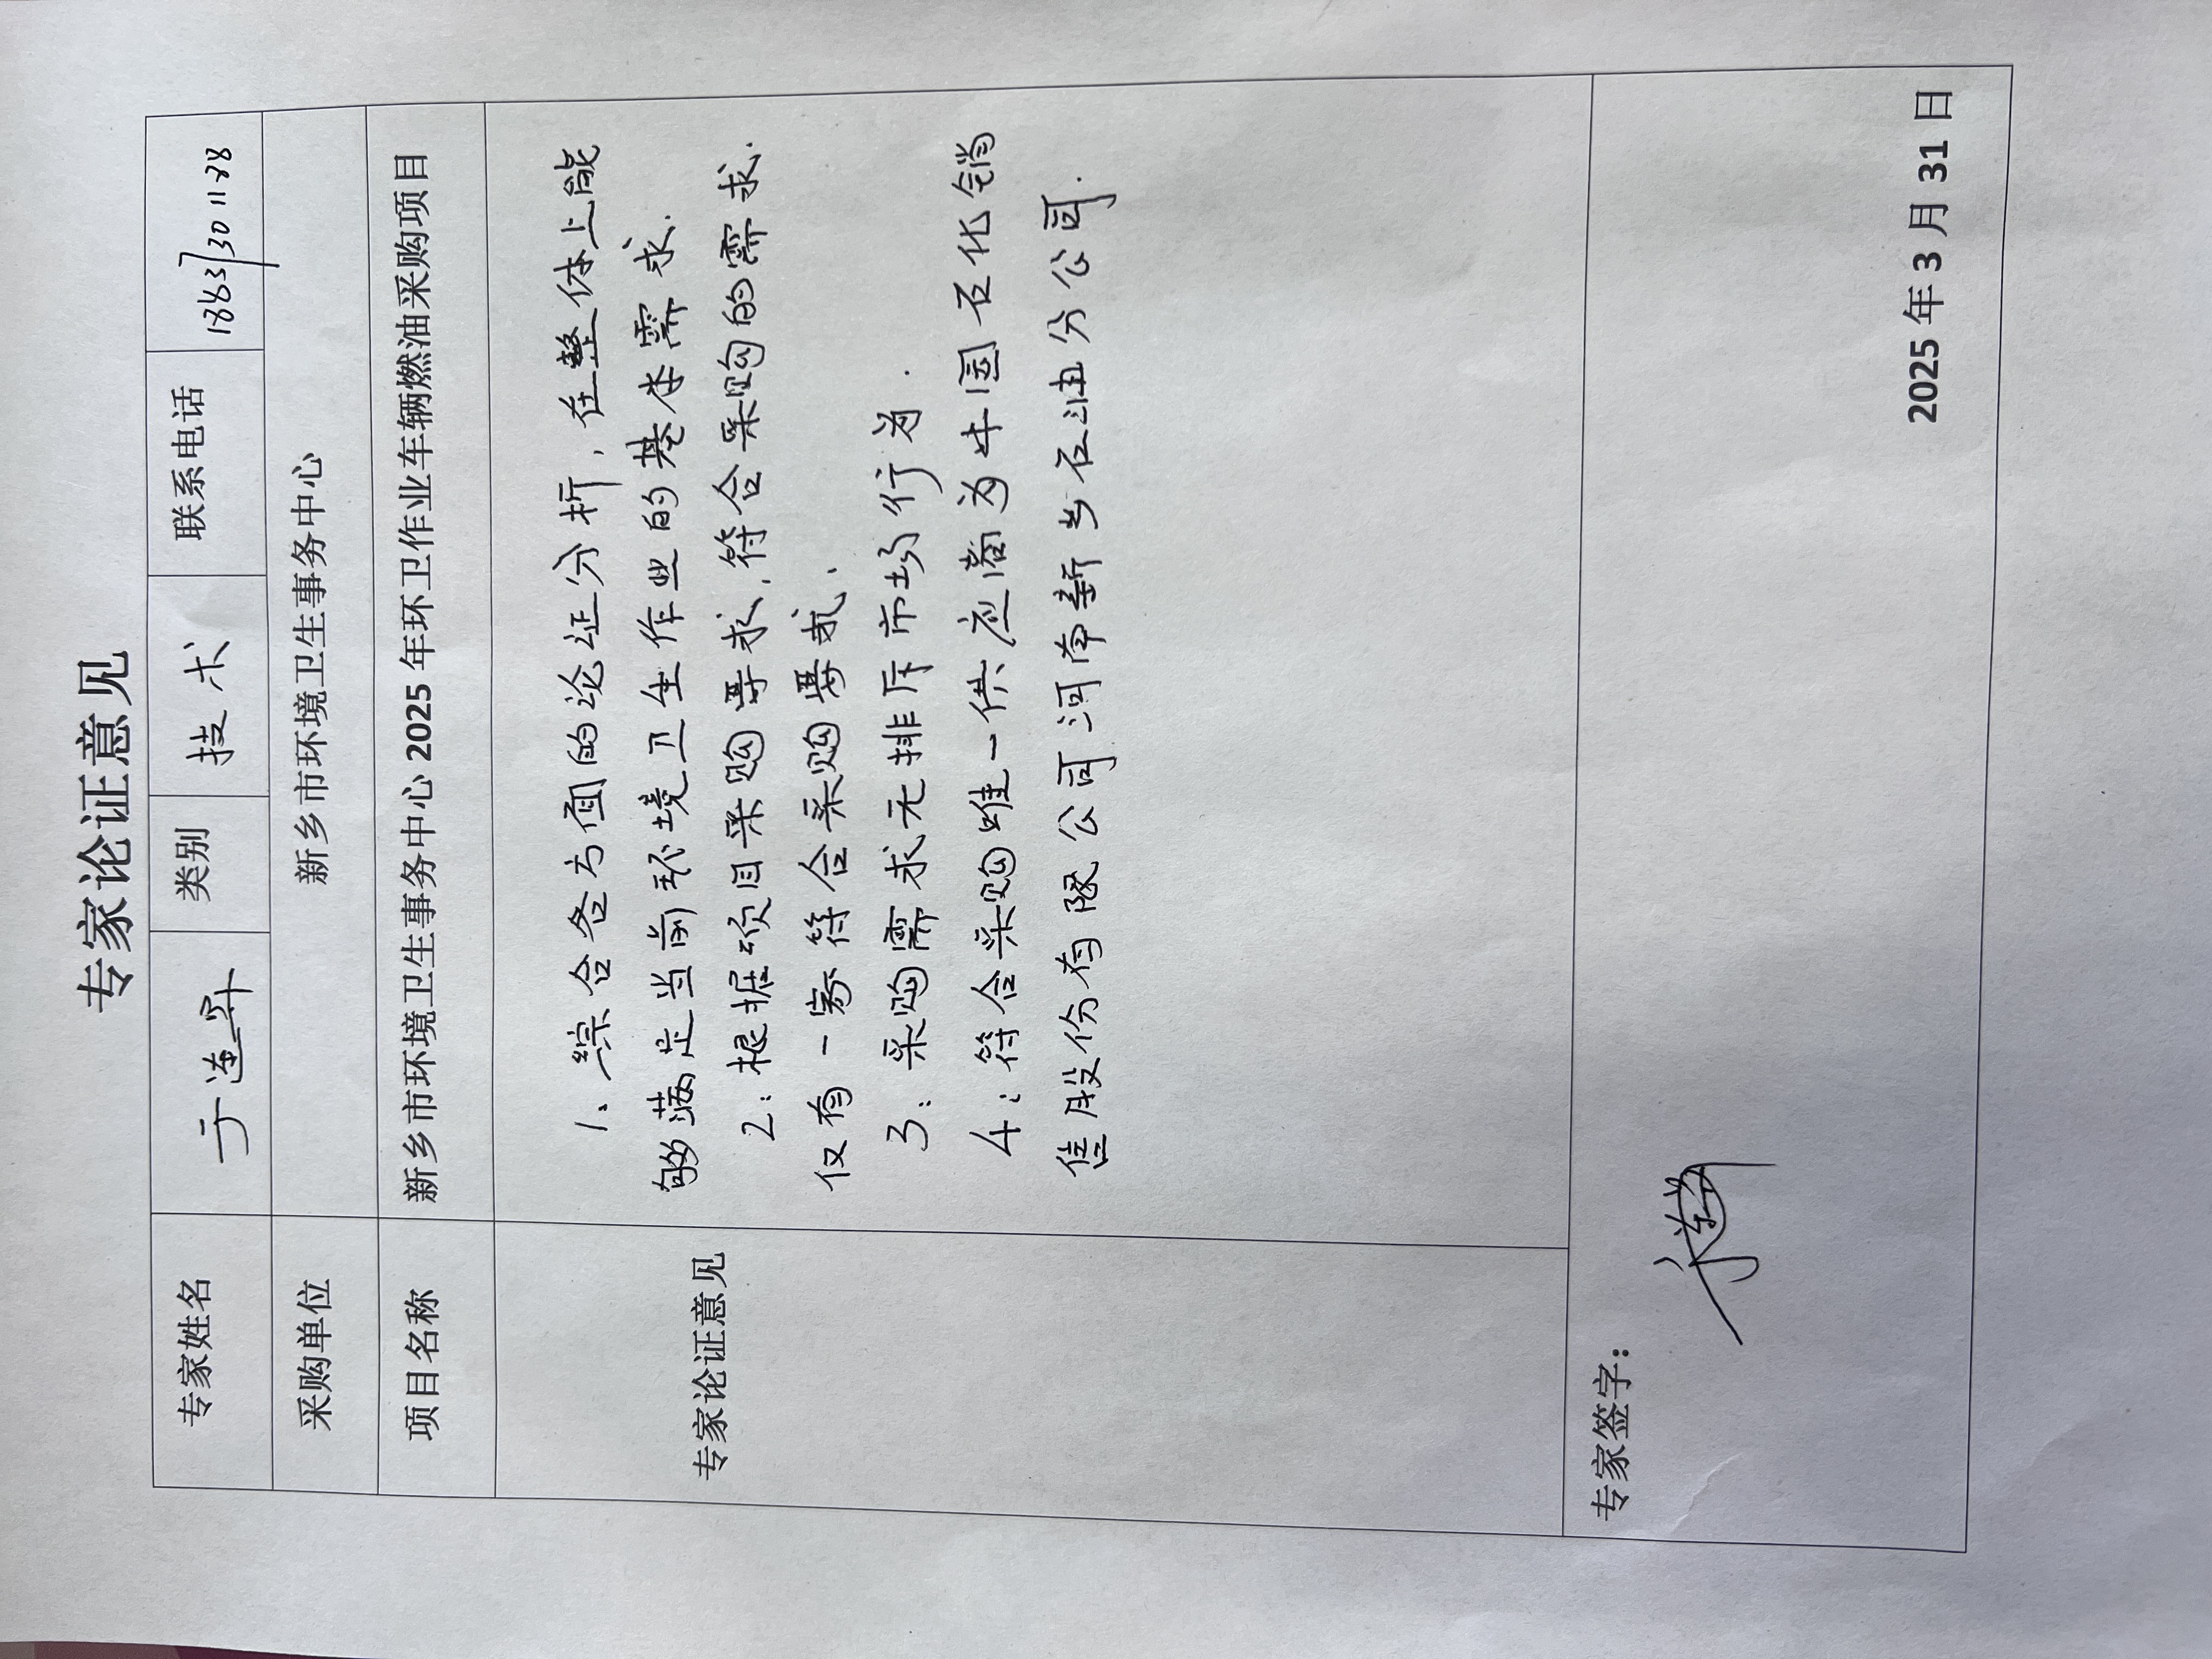 专家论证意见
专家姓名 于连军 类别 技术 联系电话
采购单位 新乡市环境卫生事务中心
项目名称 新乡市环境卫生事务中心 2025 年环卫作业车辆燃油采购项目
专家论证意见
1、综合各方面的论证分析，在整体上能
够满足当前环境卫生作业的基本需求.
2：根据项目采购要求，符合采购的需求.
仅有一家符合采购要求.
3：采购需求无排斥市场行为.
4：符合采购唯一供应商为中国石化销
售股份有限公司河南新乡石油分公司.
专家签字：
2025 年 3 月 31 日